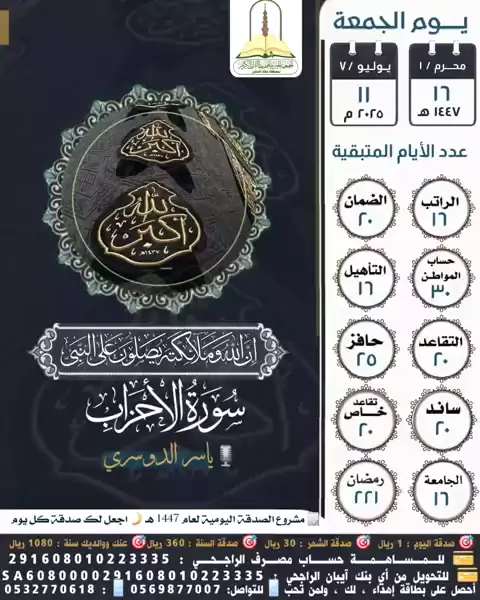 يـــوم الجمعة
محـــرم /١
١٦
١٤٤٧ هـ
يـوليـو /٧
١١
٢٠٢٥ م
عدد الأيام المتبقية
الراتب
١٦
الضمان
٢٠
حساب
المواطن
٣٠
التأهيل
١٦
التقاعد
٢٠
حافز
٢٥
ساند
٢٠
تقاعد
خـاص
٢٠
الجامعة
١٦
رمضان
٢٢١
الله
أكبر
الله
أكبر
إن الله وملائكته يصلون على النبي
سورة الأحزاب
ياسر الدوسري
مشروع الصدقة اليومية لعام 1447 هـ 🌙 اجعل لك صدقة كل يوم
صدقة اليوم : 1 ريال 🎯 صدقة الشهر : 30 ريال 🎯 صدقة السنة : 360 ريال 🎯 عنك ووالديك سنة : 1080 ريال
للمـســاهـمـة حساب مصرف الراجحـي : 291608010223335
للتحويل من أي بنك آيبان الراجحي : SA6080000291608010223335
احصل على بطاقة إهداء ، لك ، ولمن تحب 📱 للتواصل: 0569877007 📱 0532770618